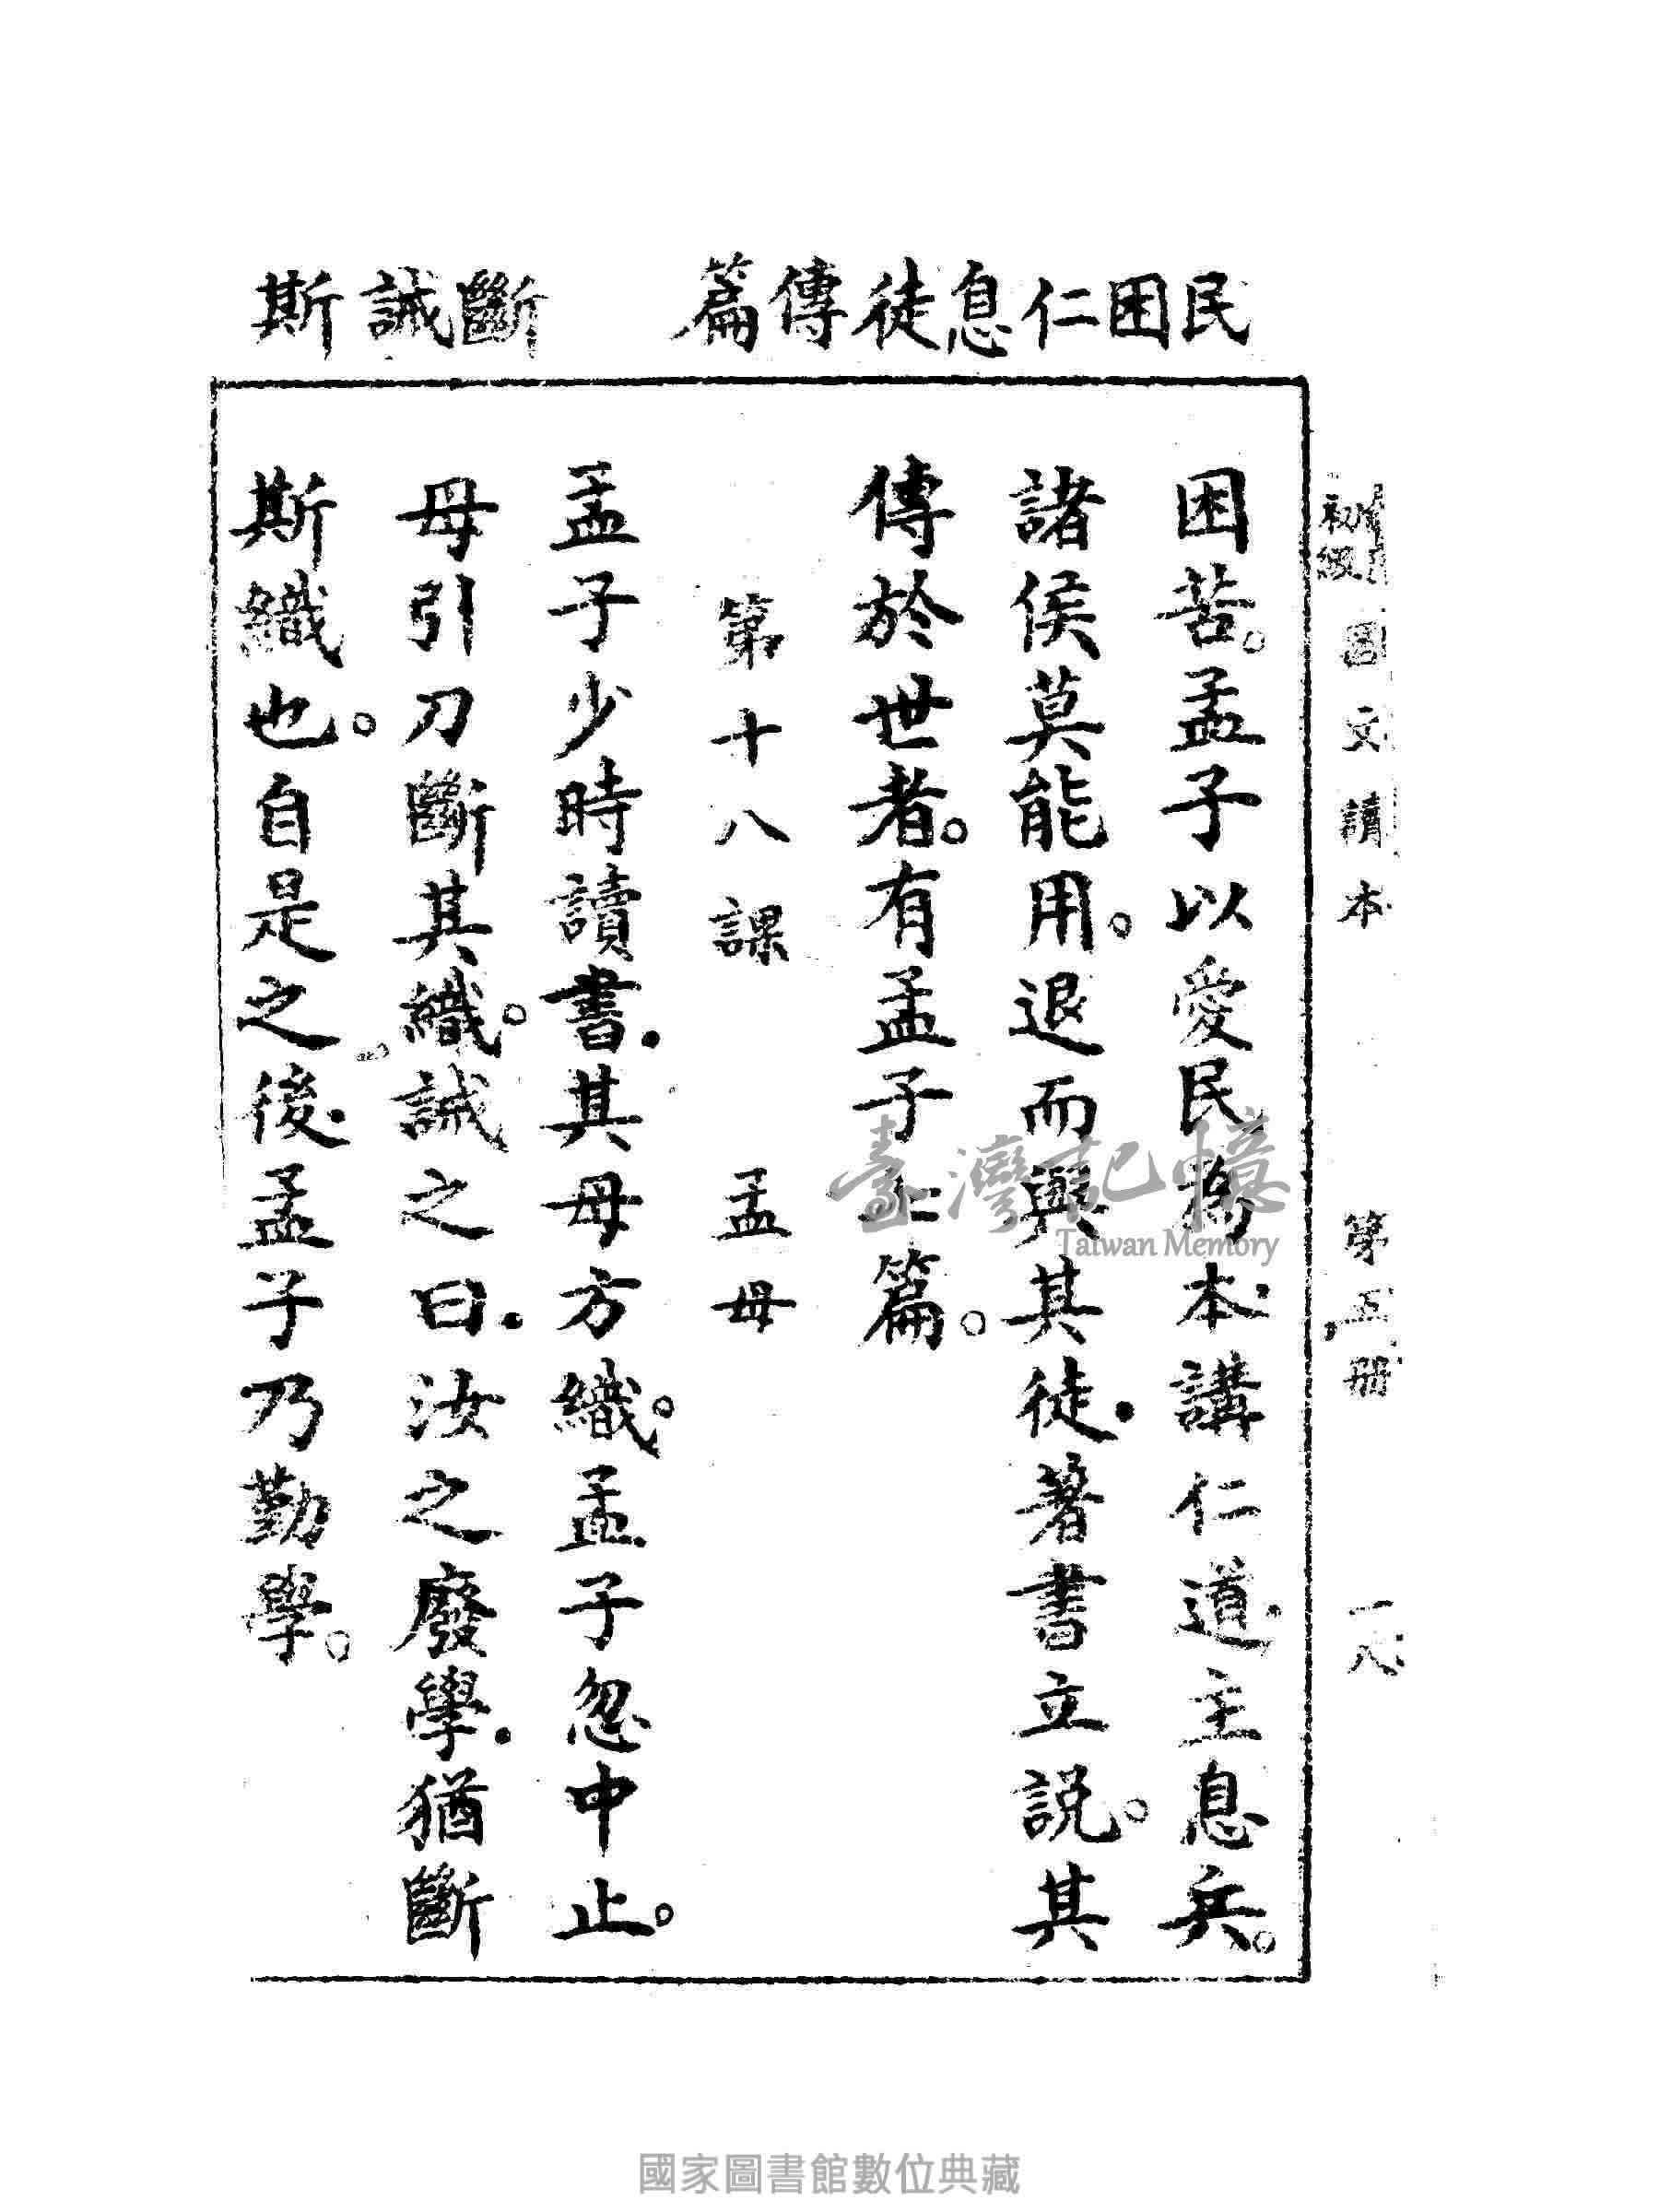 民困仁息徒傳篇 斷誡斯
初級 圖文讀本 第五册 一八
困苦。孟子以愛民為本、講仁道、主息兵。
諸侯莫能用。退而與其徒、著書立説。其
傳於世者。有孟子七篇。
第十八課 孟母
孟子少時讀書、其母方織。孟子忽中止。
母引刀斷其織。誡之曰、汝之廢學、猶斷
斯織也。自是之後、孟子乃勤學。
臺灣記憶
Taiwan Memory
國家圖書館數位典藏